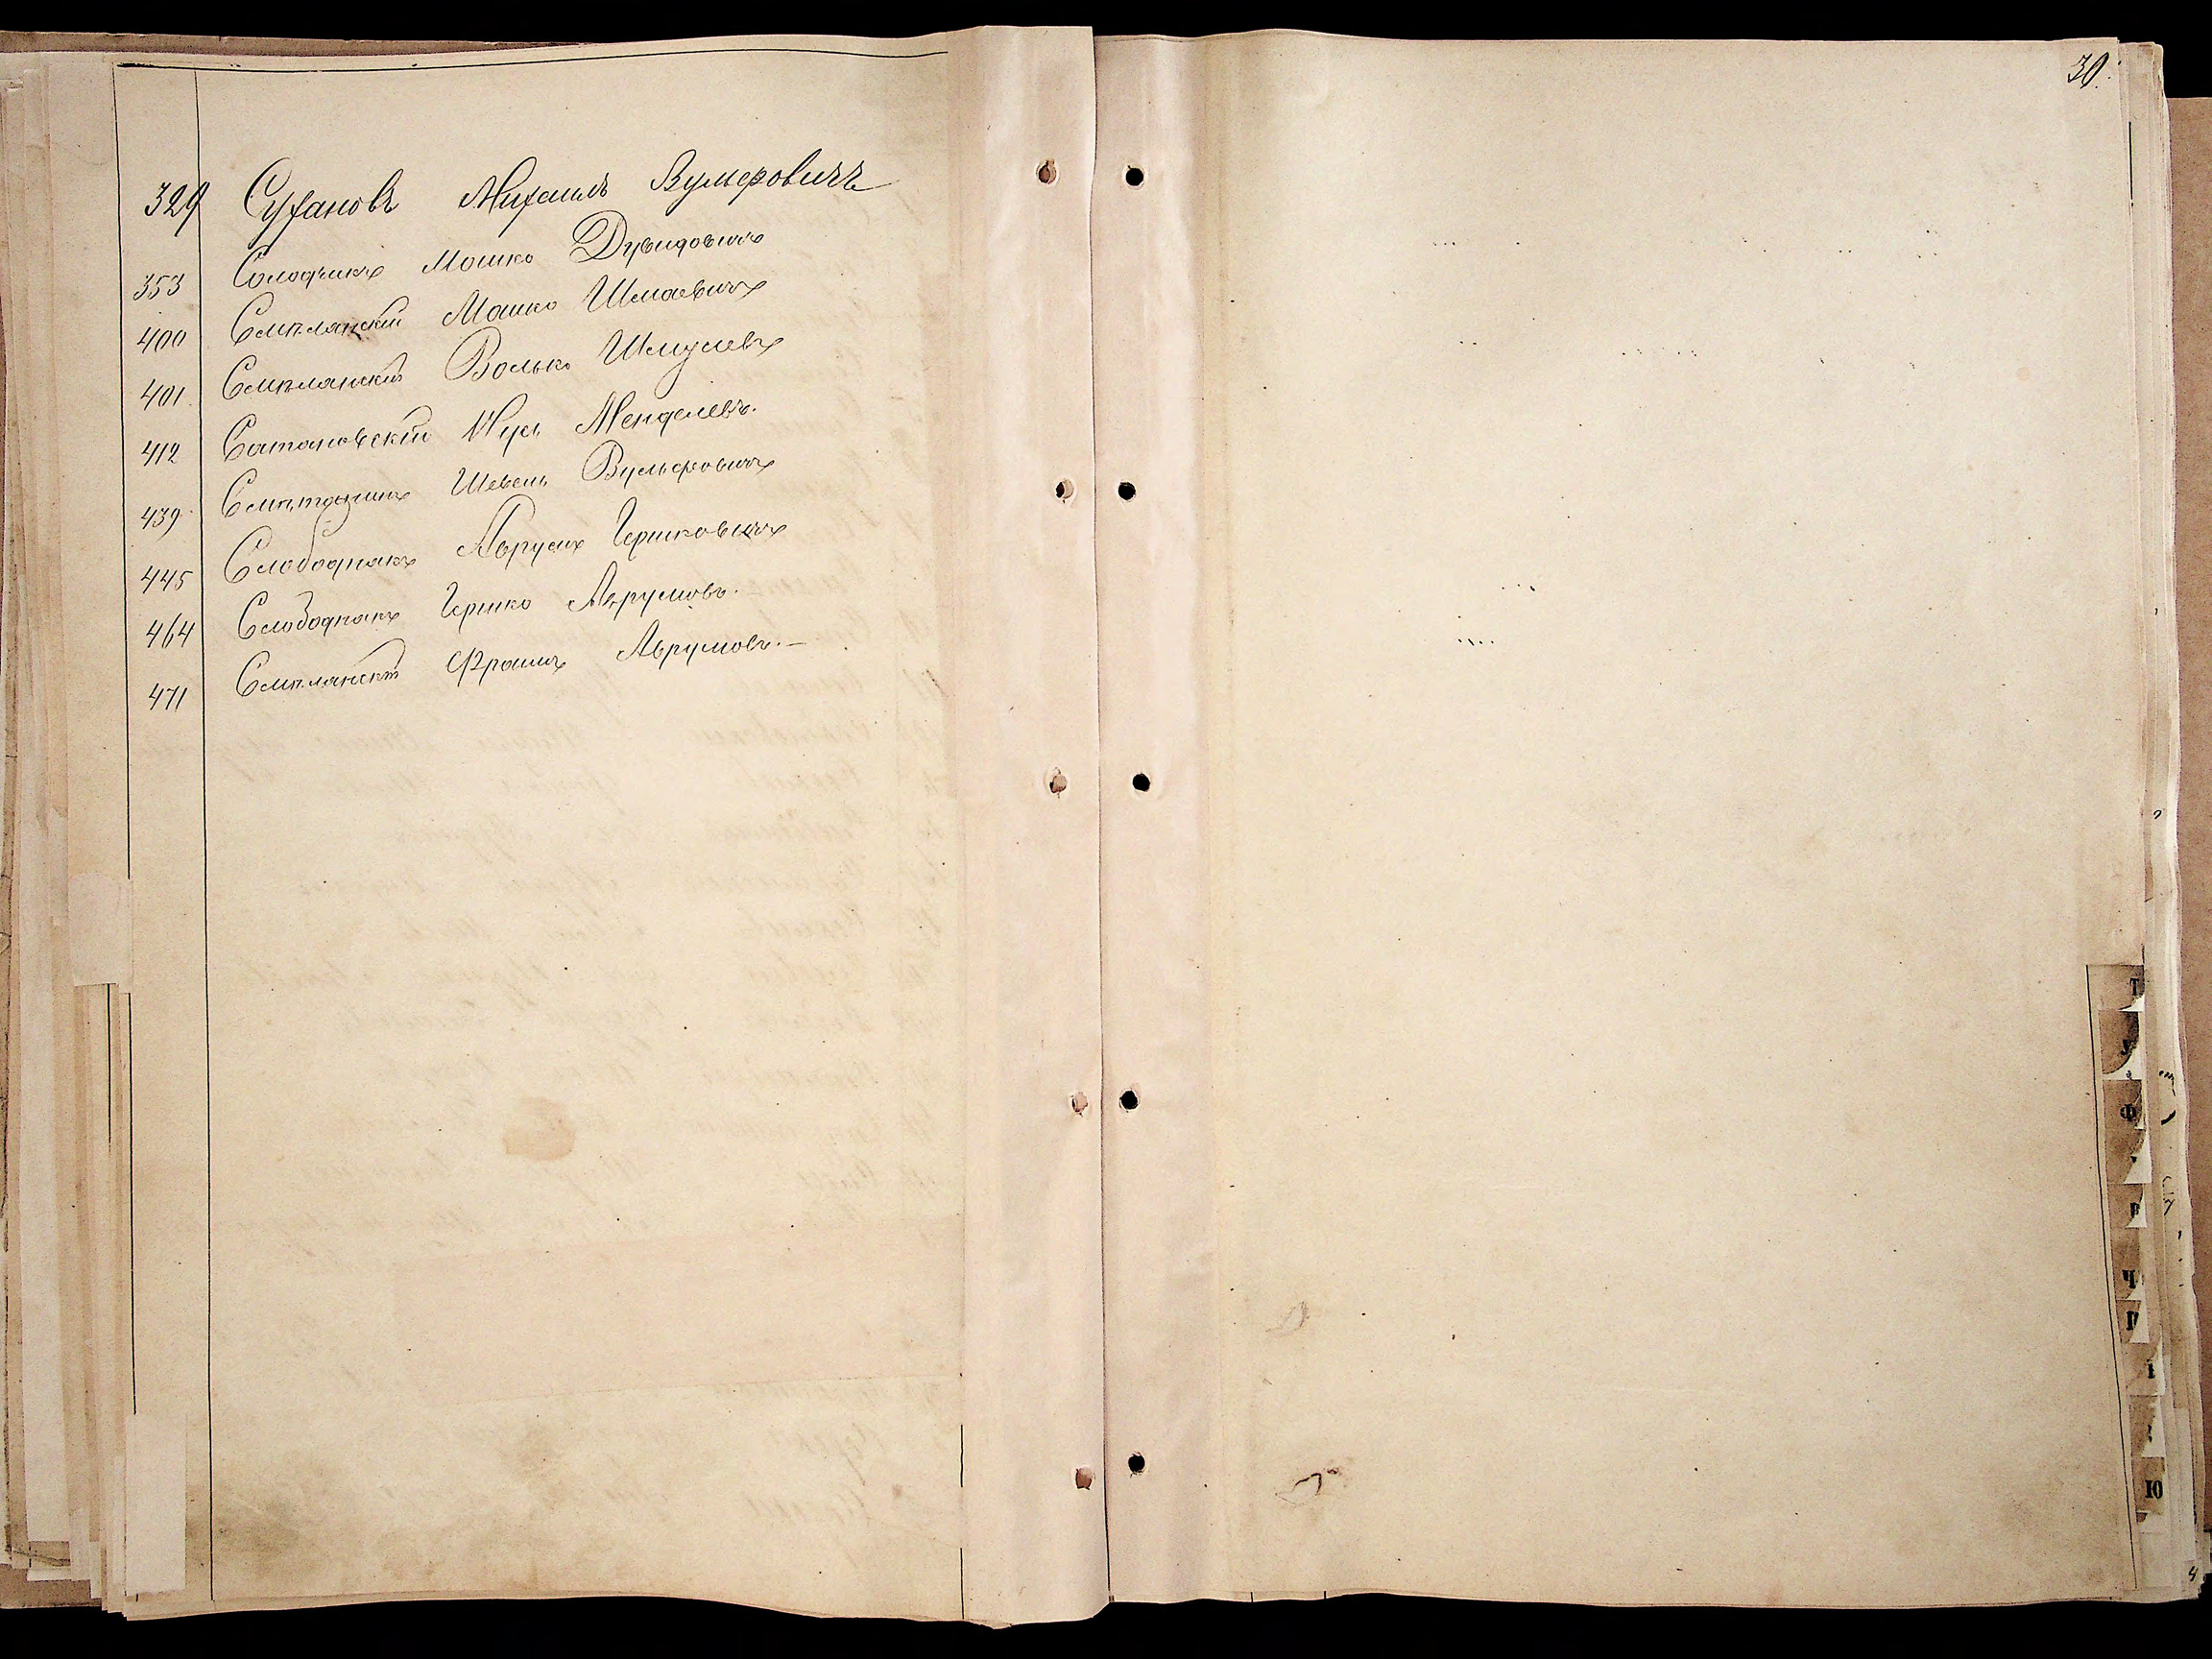 30.
329 Сухановъ Михаилъ Вульфовичъ
353 Солодчикъ Мошко Дувидовичъ
400 Смилянскій Мошко Шмаевичъ
401 Смилянскій Волько Шмулевъ
412 Сатановскій Нусь Менделевъ.
439 Вульфовичъ
445 Слободнякъ Аврумъ Гершковичъ
464 Слободнякъ Гершко Аврумовъ.
471 Смилянскій Фроимъ Аврумовъ.—
Т
У
Ф
Ч
Ю